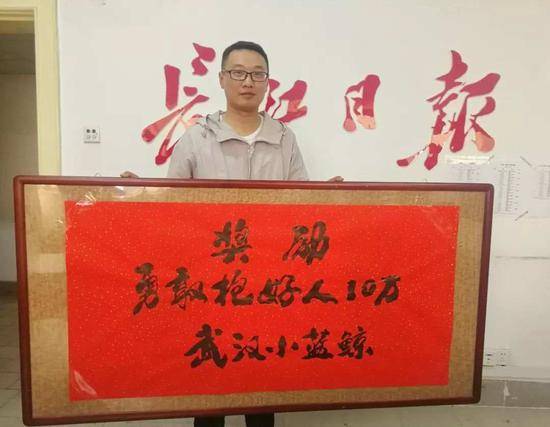 長江日报
奖励
勇敢抱好人10万
武汉小蓝鲸